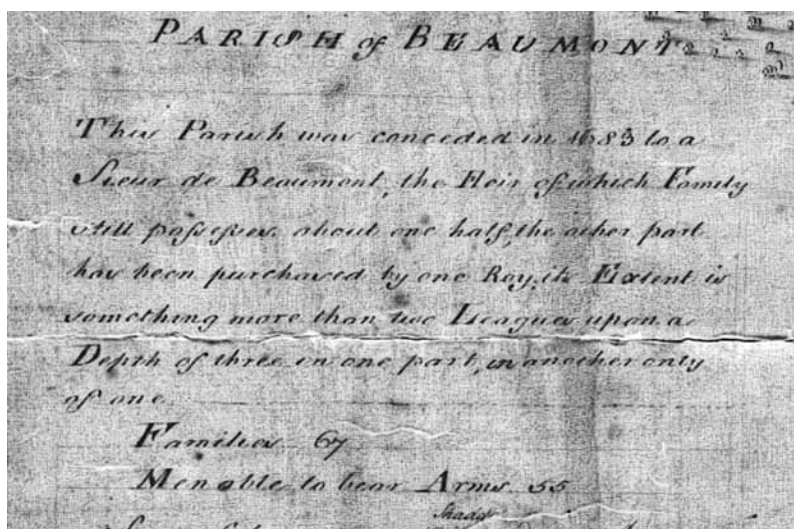 PARISH of BEAUMONT
This Parish was conceded in 1683 to a
Sieur de Beaumont, the Heir of which Family
still possesses about one half, the other part
has been purchased by one Roy, its Extent is
something more than two Leagues upon a
Depth of three in one part, in another only
of one.
Families 67
Men able to bear Arms 55